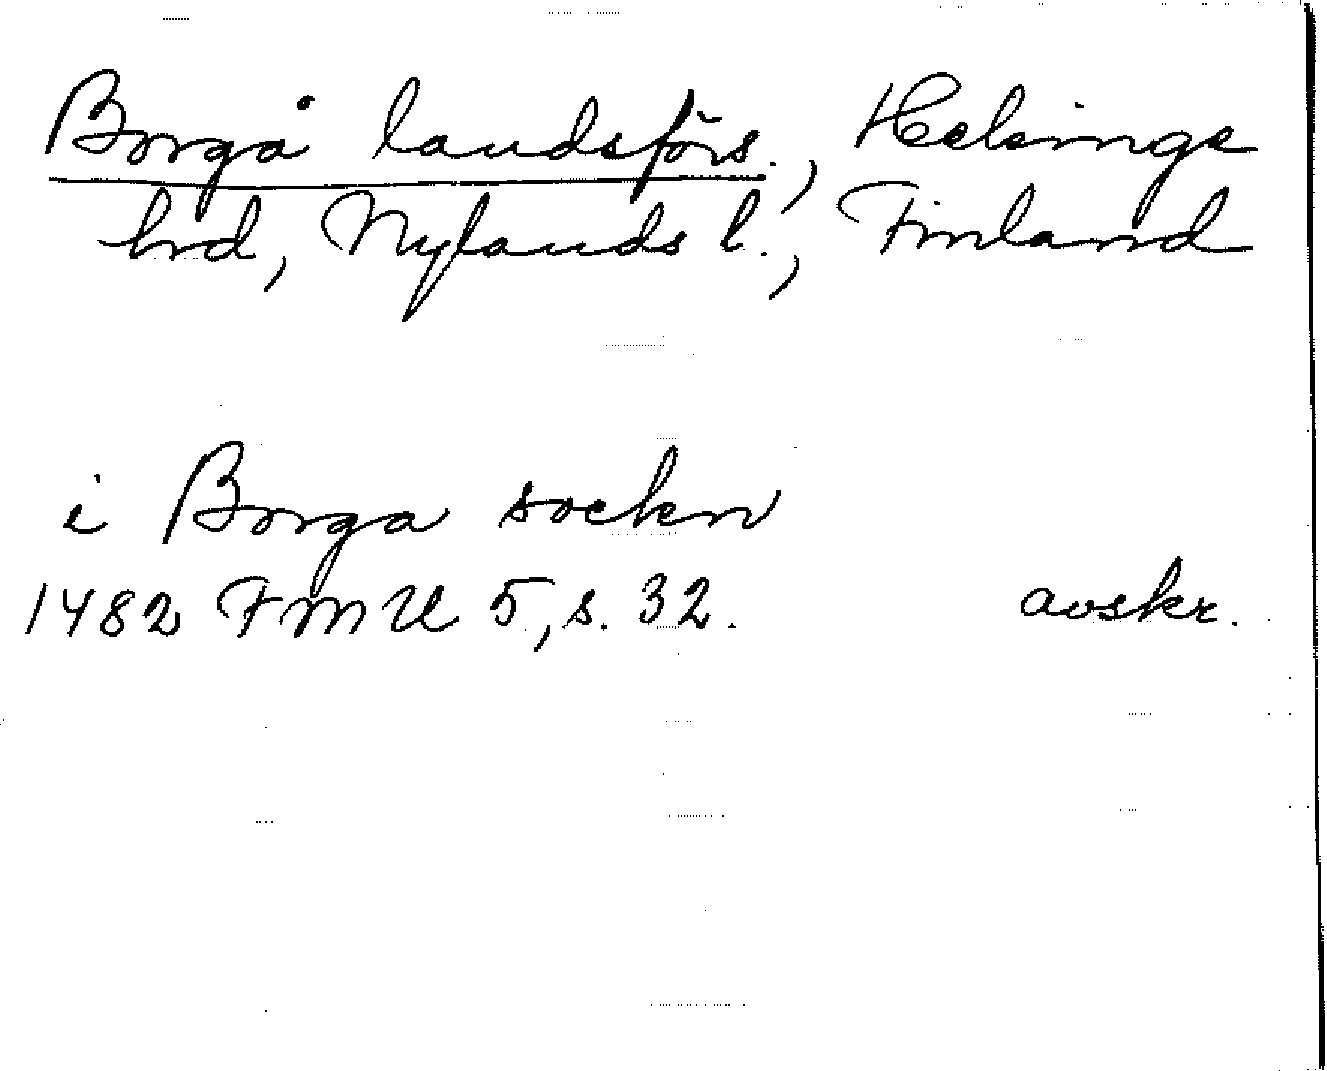 Borgå landsförs., Helsinge
hrd, Nylands l., Finland
i Borga sockn
1482 FMU 5, s. 32. avskr.